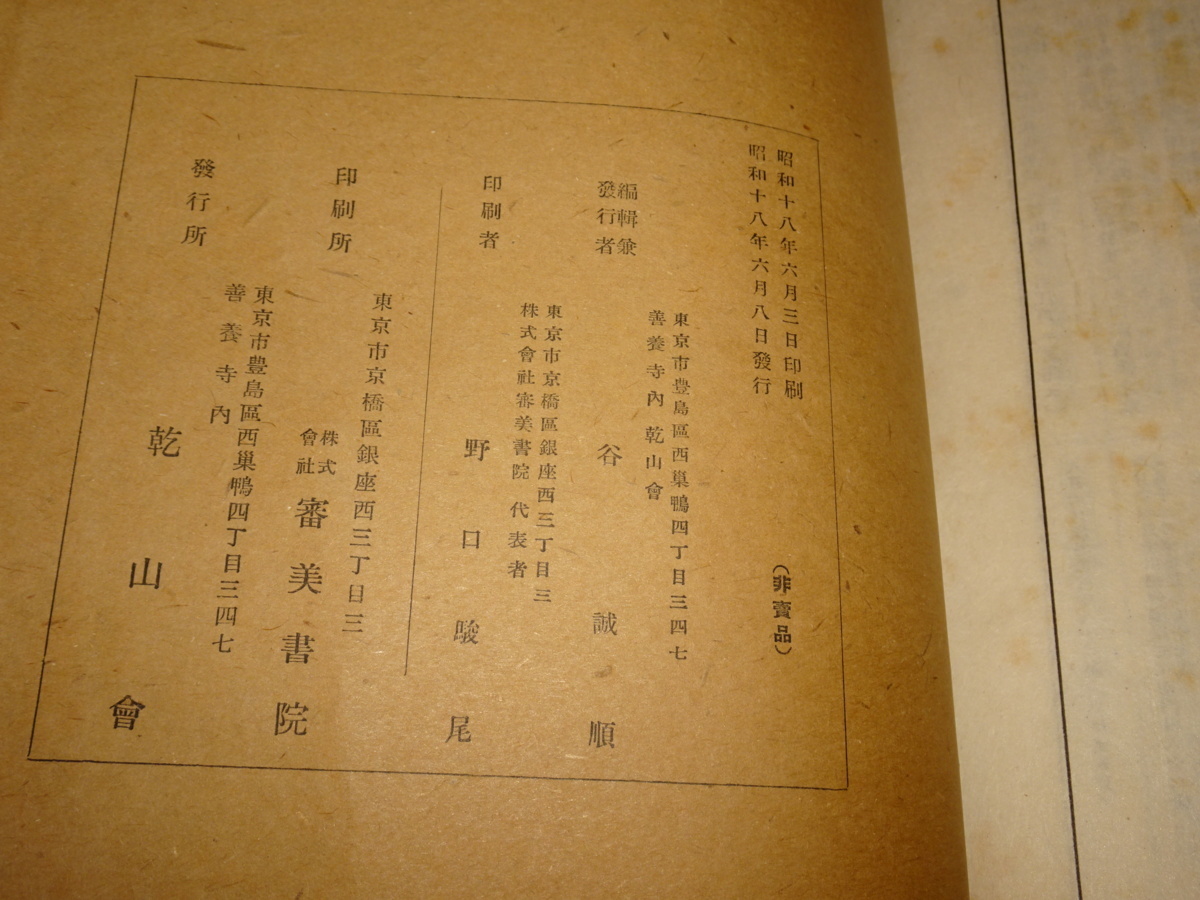 昭和十八年六月三日印刷
昭和十八年六月八日發行
(非賣品)
編輯兼
發行者
東京市豊島區西巢鴨四丁目三四七
善養寺內乾山會
谷誠順
印刷者
東京市京橋區銀座西三丁目三
株式會社審美書院代表者
野口駿尾
印刷所
東京市京橋區銀座西三丁目三
株式
會社
審美書院
發行所
東京市豊島區西巢鴨四丁目三四七
善養寺內
乾山會